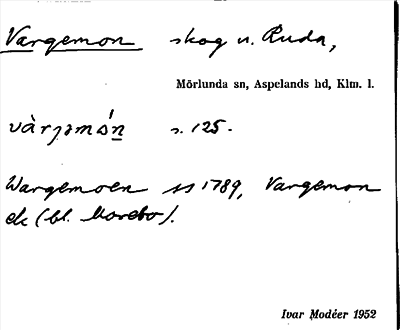 Vargemon skog n. Ruda,
Mörlunda sn, Aspelands hd, Klm. l.
vàrjəmón s. 125.
Wargemoen ss 1789, Vargemon
ek (bl. Morebo).
Ivar Modéer 1952